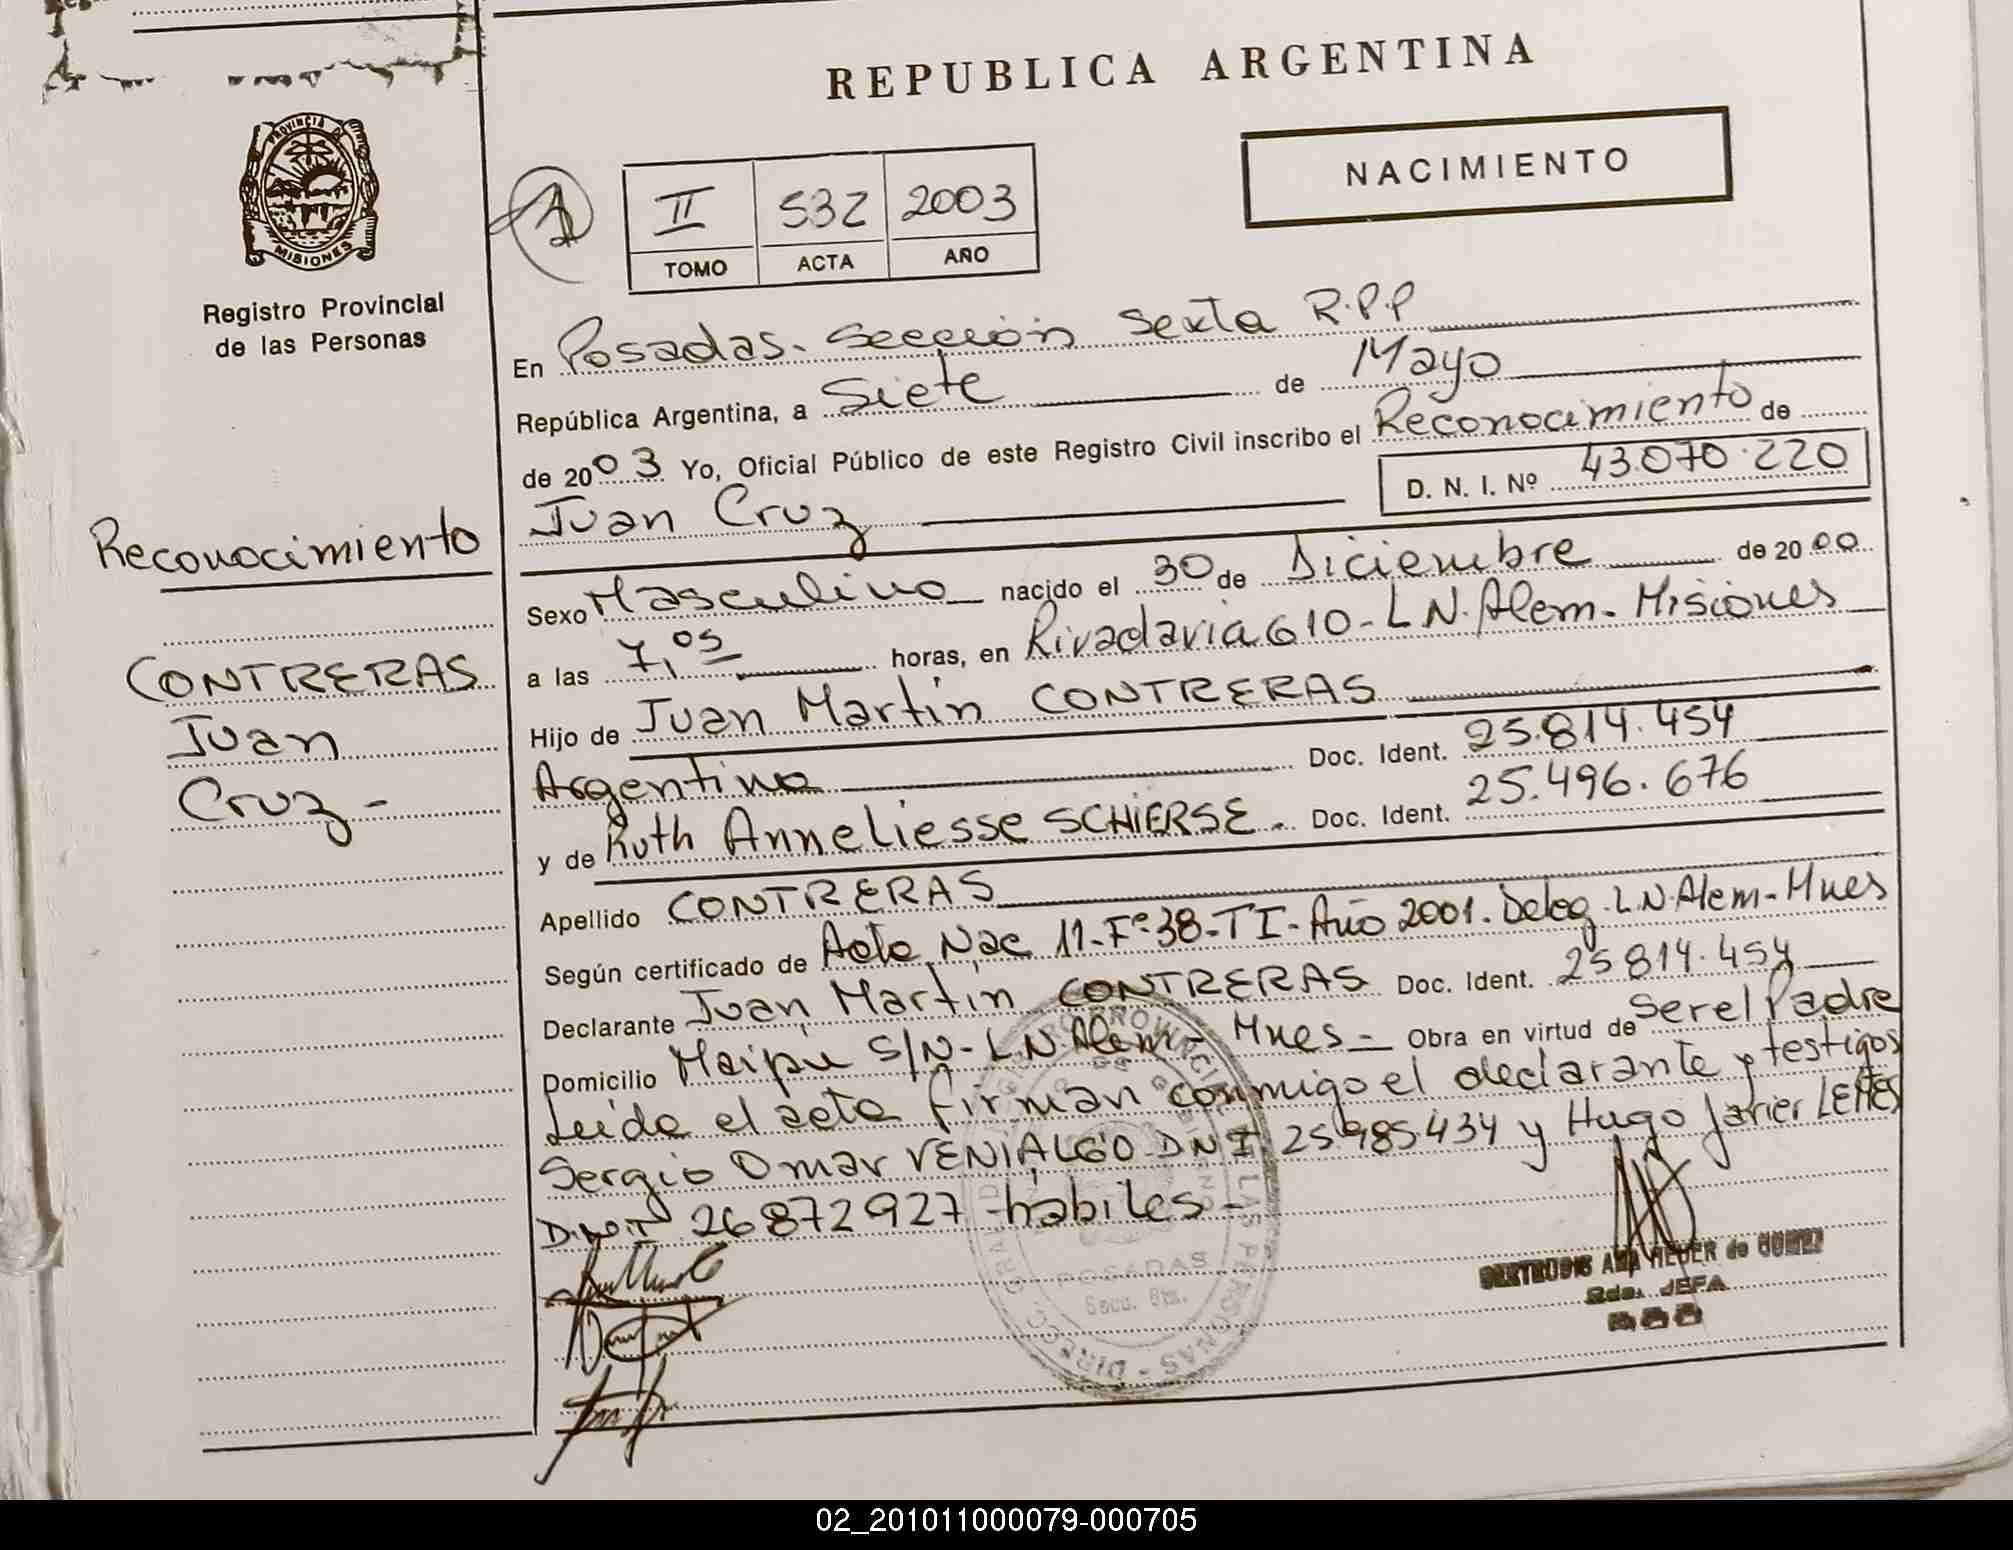 REPUBLICA ARGENTINA
NACIMIENTO
II 532 2003
TOMO ACTA AÑO
PROVINCIA DE
MISIONES
Registro Provincial
de las Personas
Reconocimiento
CONTRERAS
Juan
Cruz -
En Posadas. Sección Sexta R.P.P
República Argentina, a Siete de Mayo
de 2003 Yo, Oficial Público de este Registro Civil inscribo el Reconocimiento de
Juan Cruz D. N. I. Nº 43.070.220
Sexo Masculino nacido el 30 de Diciembre de 2000
a las 7,05 horas, en Rivadavia 610 - L N. Alem - Misiones
Hijo de Juan Martin CONTRERAS
Argentino Doc. Ident. 25.814.454
y de Ruth Anneliesse SCHIERSE - Doc. Ident. 25.496.676
Apellido CONTRERAS
Según certificado de Acta Nac 11 - Fº 38 - T I - Año 2001. Deleg. L.N. Alem - Mnes
Declarante Juan Martin CONTRERAS Doc. Ident. 25814.454
Domicilio Maipú S/N - L.N. Alem - Mnes - Obra en virtud de Ser el Padre
Leida el acta firman conmigo el declarante y testigos
Sergio Omar VENIALGO DNI 25985434 y Hugo Javier LEMES
26872927 - hábiles -
POSADAS
JEFA
02_201011000079-000705